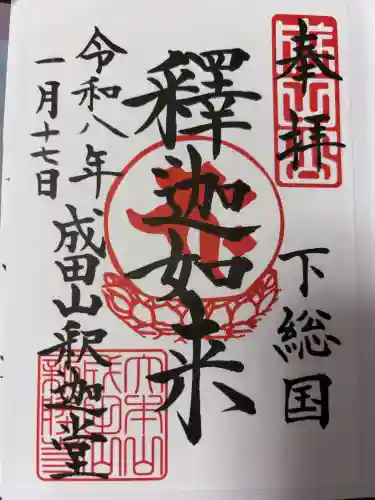 奉拝
下総国
釋迦如来
令和八年
一月十七日
成田山釈迦堂